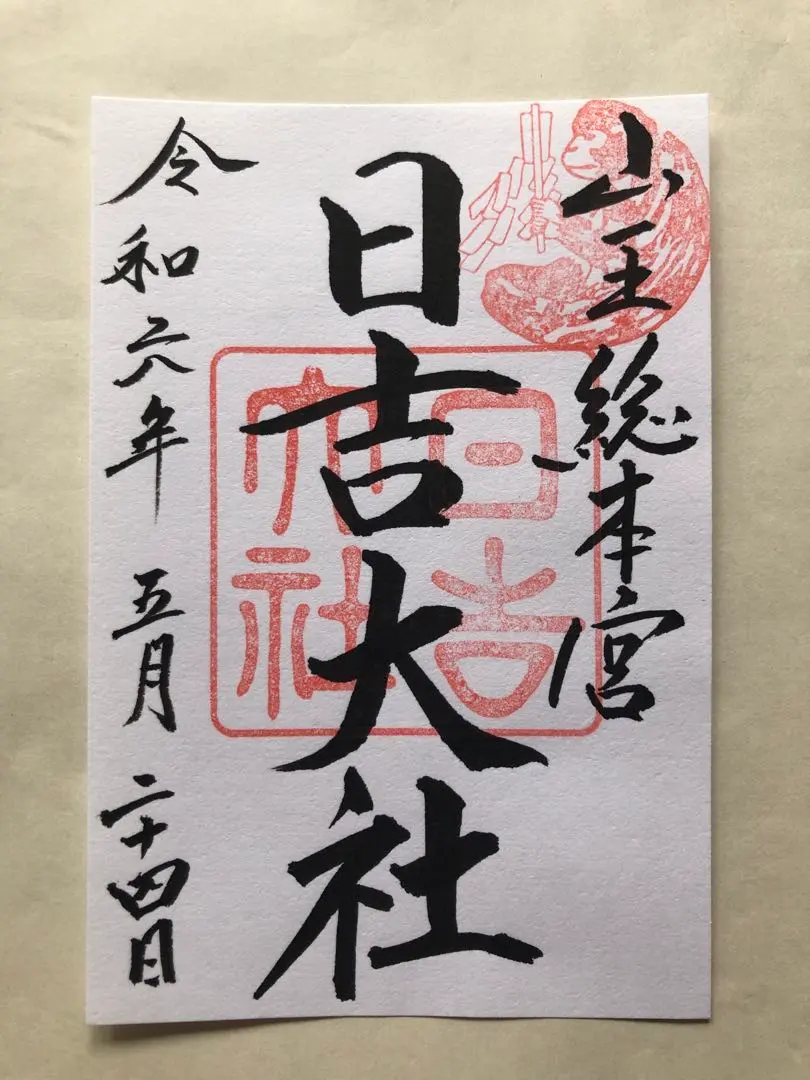 山王総本宮
日吉大社
日吉
大社
令和六年 五月 二十四日